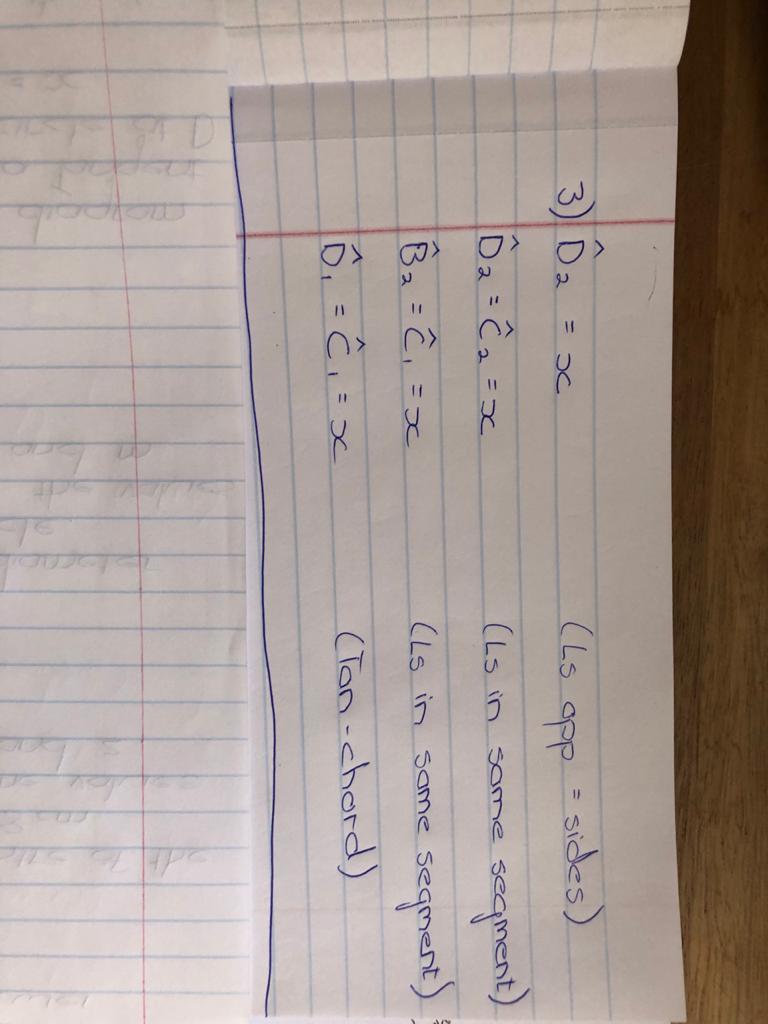 3) D̂₂ = x (Ls opp = sides)
D̂₂ = Ĉ₂ = x (Ls in same segment)
B̂₂ = Ĉ₁ = x (Ls in same segment)
D̂₁ = Ĉ₁ = x (Tan-chord)